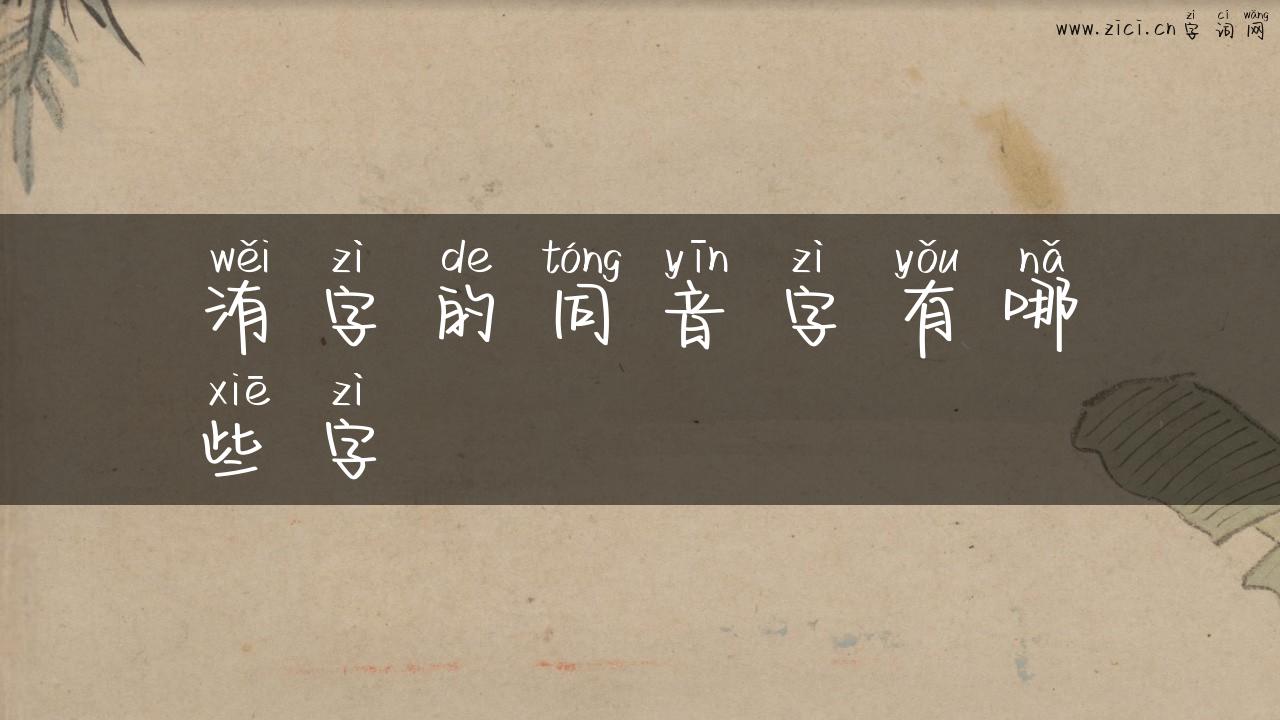 zì cí wǎng
www.zici.cn 字词网
wěi zì de tóng yīn zì yǒu nǎ
洧字的同音字有哪
xiē zì
些字